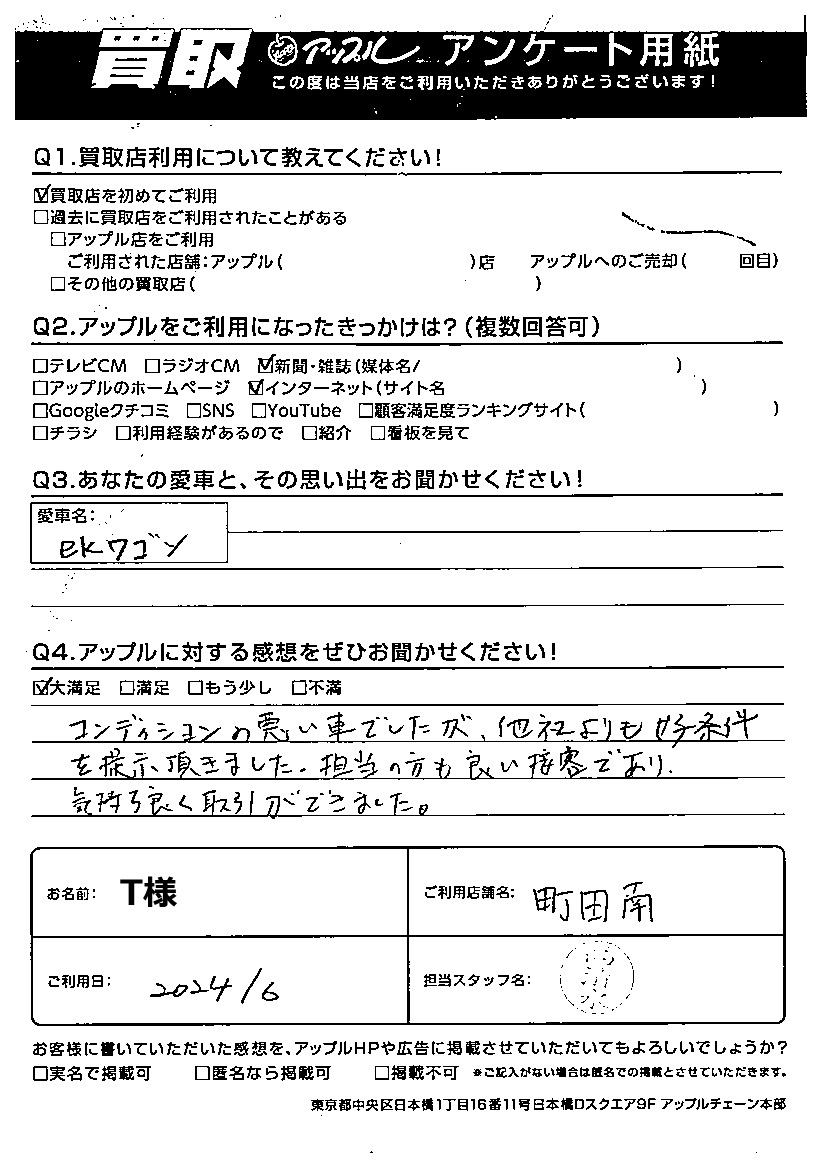 買取 アップル アンケート用紙
この度は当店をご利用いただきありがとうございます!
Q1.買取店利用について教えてください!
☑買取店を初めてご利用
□過去に買取店をご利用されたことがある
□アップル店をご利用
ご利用された店舗:アップル( )店 アップルへのご売却( 回目)
□その他の買取店( )
Q2.アップルをご利用になったきっかけは?(複数回答可)
□テレビCM □ラジオCM ☑新聞・雑誌(媒体名/ )
□アップルのホームページ ☑インターネット(サイト名 )
□Googleクチコミ □SNS □YouTube □顧客満足度ランキングサイト( )
□チラシ □利用経験があるので □紹介 □看板を見て
Q3.あなたの愛車と、その思い出をお聞かせください!
愛車名:
ekワゴン
Q4.アップルに対する感想をぜひお聞かせください!
☑大満足 □満足 □もう少し □不満
コンディションの悪い車でしたが、他社よりも好条件
を提示頂きました。担当の方も良い接客であり、
気持ち良く取引ができました。
お名前: T様 ご利用店舗名: 町田南
ご利用日: 2024/6 担当スタッフ名:
お客様に書いていただいた感想を、アップルHPや広告に掲載させていただいてもよろしいでしょうか?
□実名で掲載可 □匿名なら掲載可 □掲載不可 ※ご記入がない場合は匿名での掲載とさせていただきます。
東京都中央区日本橋1丁目16番11号日本橋Dスクエア9F アップルチェーン本部